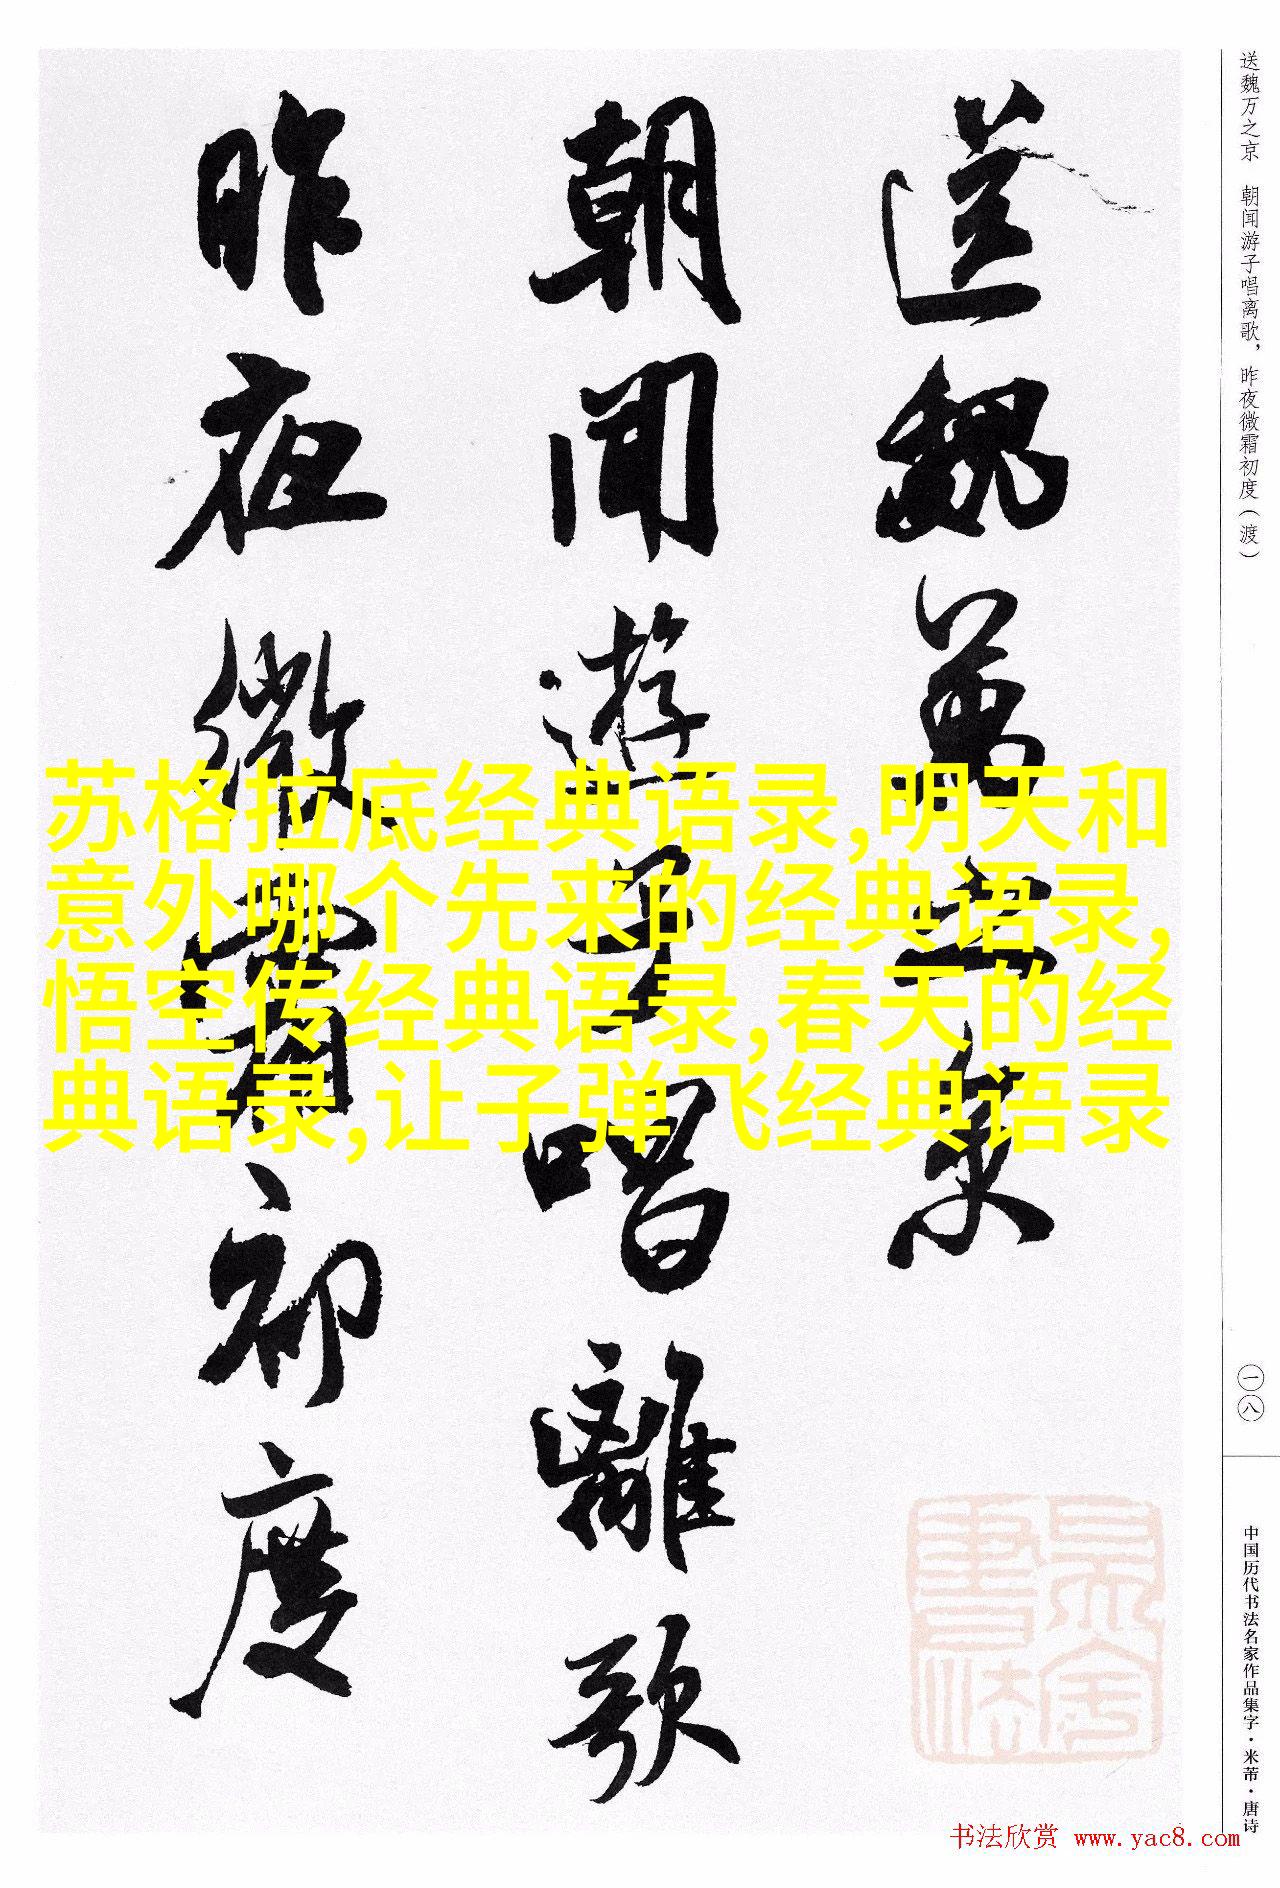 送魏萬之京
朝聞遊子唱離歌
昨夜微霜初度
苏格拉底经典语录,明天和
意外哪个先来的经典语录,
悟空传经典语录,春天的经
典语录,让子弹飞经典语录
送魏万之京　朝闻游子唱离歌，昨夜微霜初度（渡）
一八
中国历代书法名家作品集字·米芾·唐诗
书法欣赏 www.yac8.com